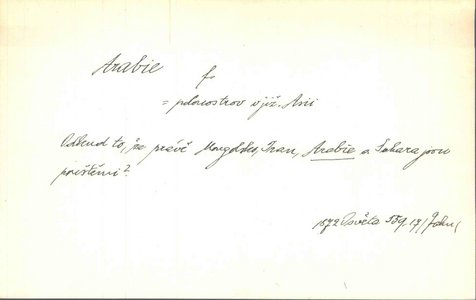 Arabie f
= poloostrov v již. Asii
Odkud to, že právě Mongolsko, Iran, Arabie a Sahara jsou
pouštěmi?
1872 Osvěta 559, 17/John/